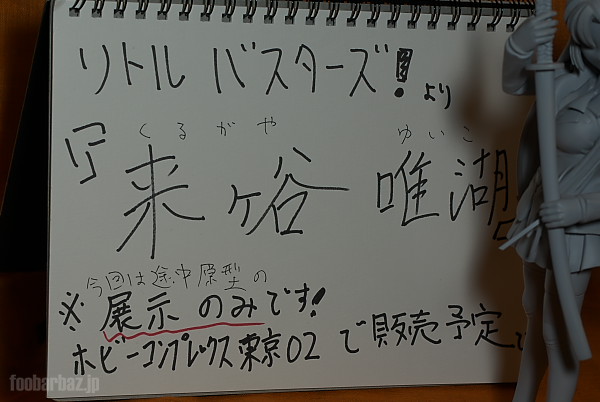 リトルバスターズ!より
くるがや ゆいこ
『来ヶ谷 唯湖』
今回は途中原型の
※展示のみです!
ホビーコンプレックス東京02で販売予定
foobarbaz.jp